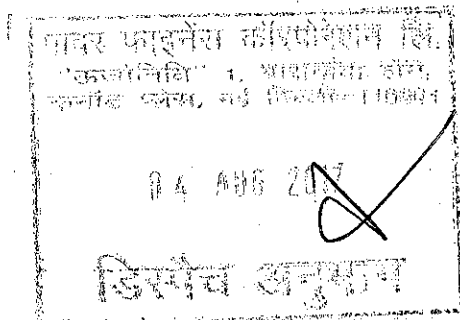 पावर फाइनेंस कॉरपोरेशन लि.
"ऊर्जानिधि" 1, बाराखंभा लेन,
कनॉट प्लेस, नई दिल्ली-110001
04 AUG 2017
डिस्पैच अनुभाग